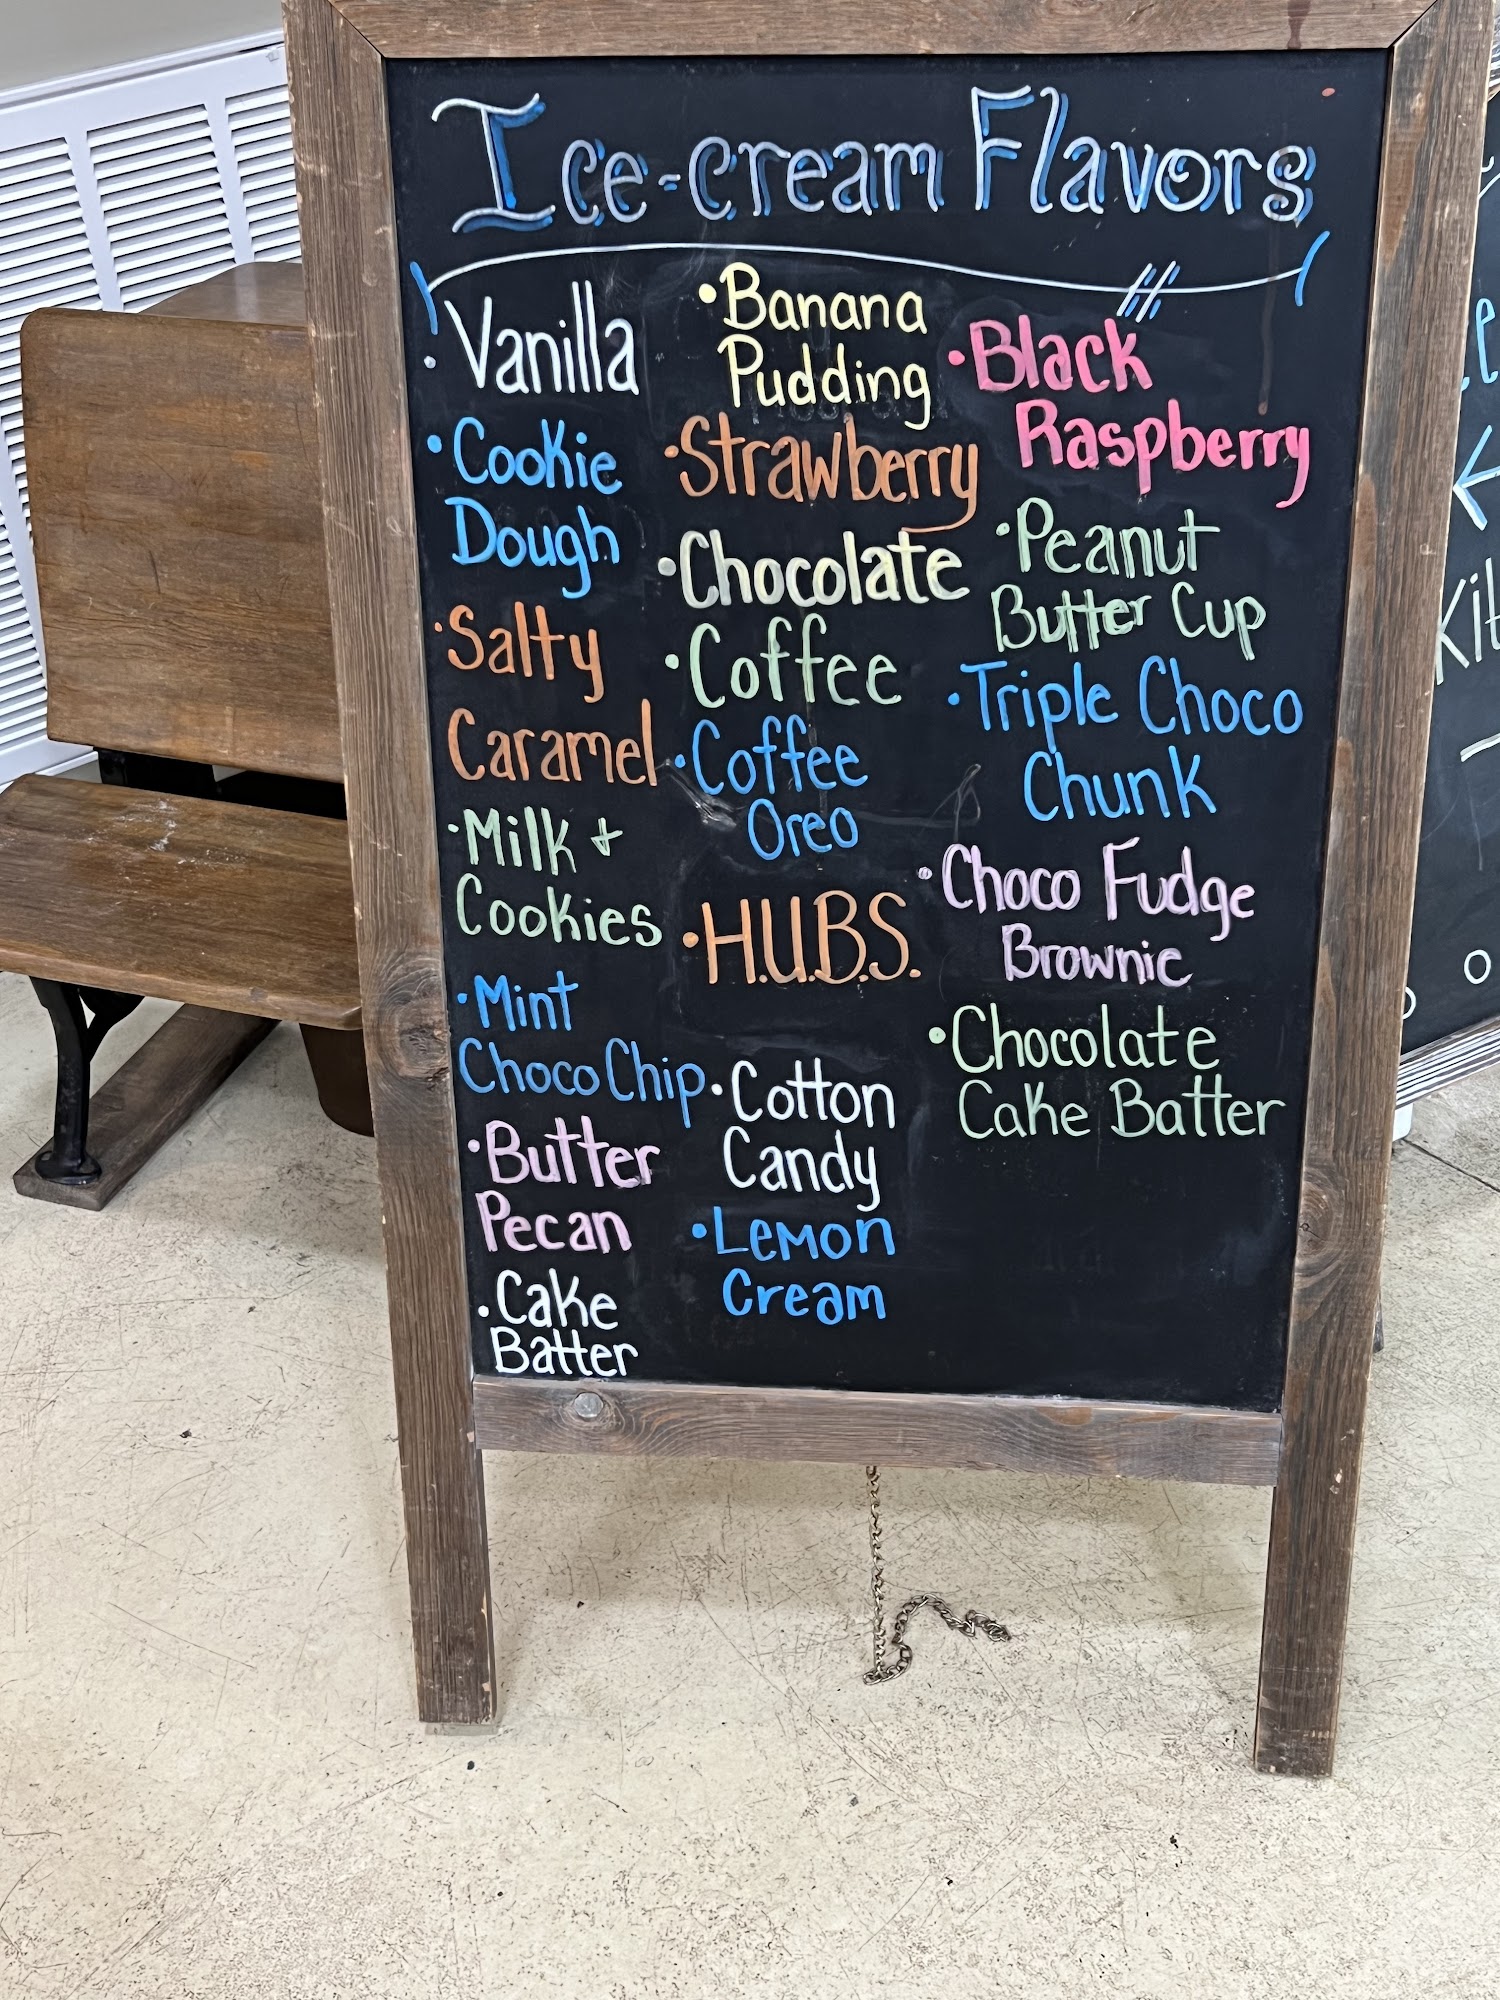 Ice-cream Flavors
• Vanilla
• Cookie
Dough
• Salty
Caramel
• Milk +
Cookies
• Mint
Choco Chip
• Butter
Pecan
• Cake
Batter
• Banana
Pudding
• Strawberry
• Chocolate
• Coffee
• Coffee
Oreo
• H.U.B.S.
• Cotton
Candy
• Lemon
Cream
• Black
Raspberry
• Peanut
Butter Cup
• Triple Choco
Chunk
• Choco Fudge
Brownie
• Chocolate
Cake Batter